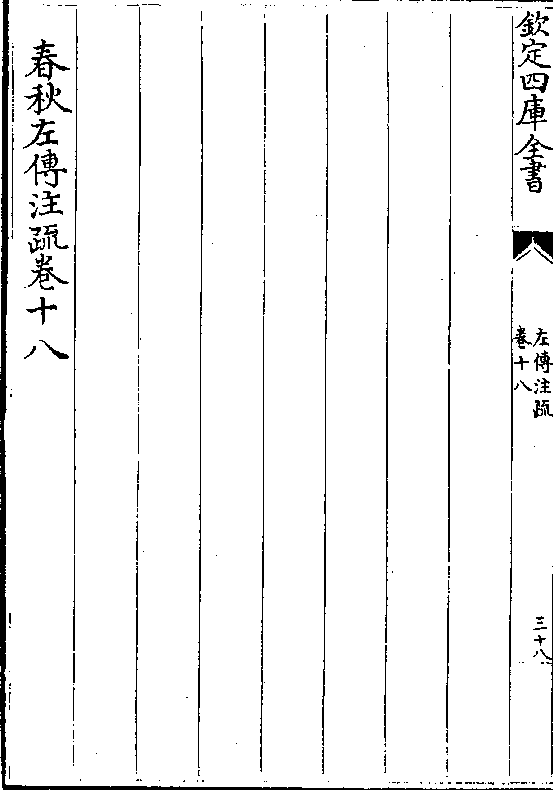 欽定四庫全書
左傳注疏
卷十八
三十八
春秋左傳注疏卷十八